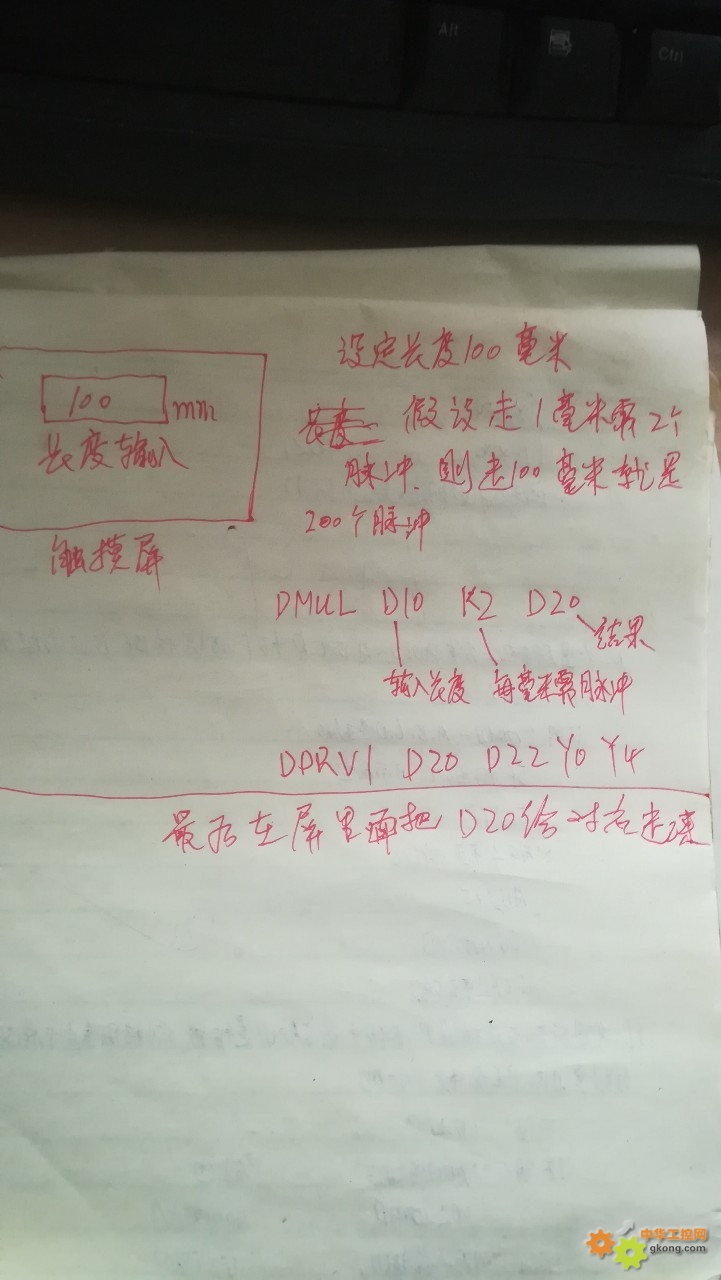 Alt
Ctrl
设定长度100毫米
100 mm
长度输入
触摸屏
长度
假设走1毫米需2个
脉冲.则走100毫米就是
200个脉冲
DMUL D10 K2 D20
结果
输入长度 每毫米需脉冲
DDRVI D20 D22 Y0 Y4
最后在屏里面把D20给对应连
中华工控网
gkong.com